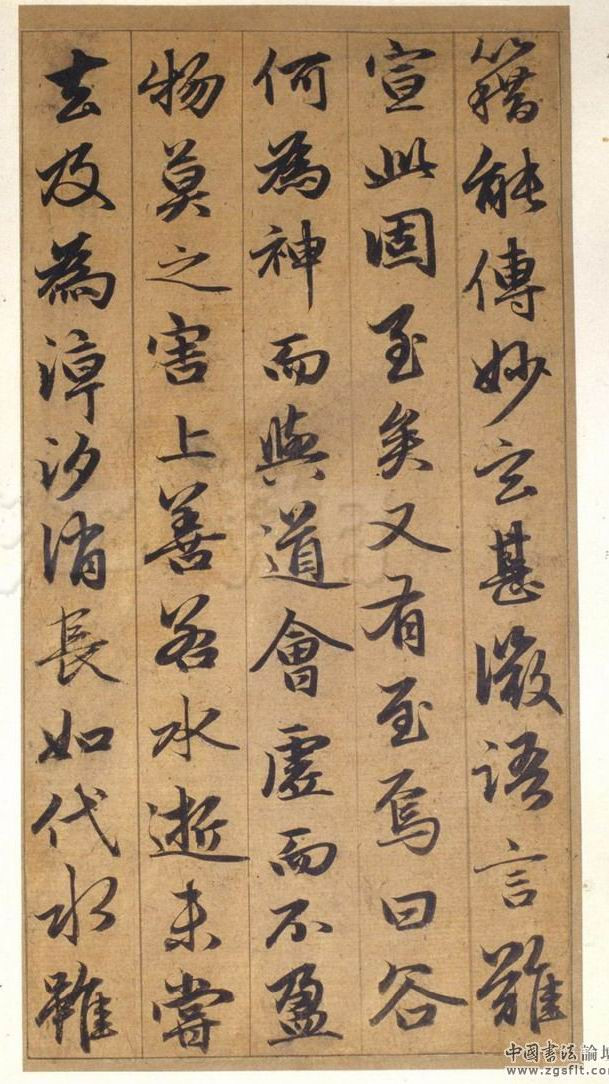 籍能傳妙玄甚微語言難
宣此固至矣又有至焉曰谷
何為神而與道會虛而不盈
物莫之害上善若水逝未嘗
去及為漳汐消長如代水雖
中國書法論壇
www.zgsflt.com